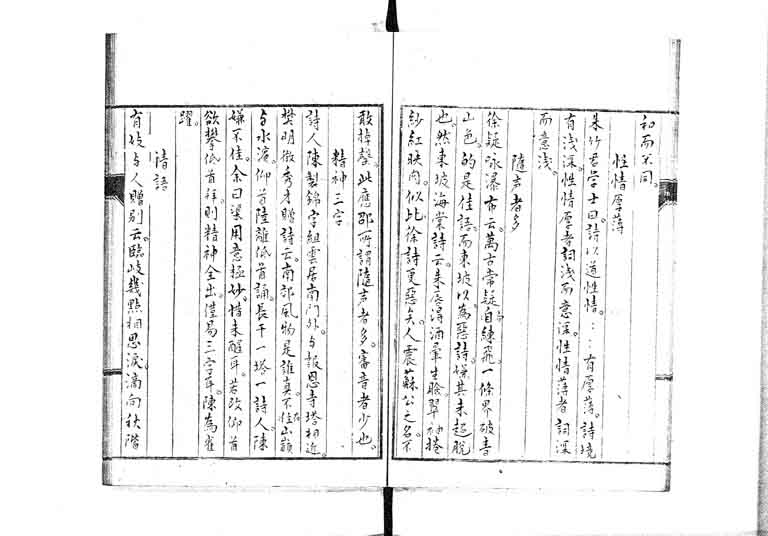 和而不同。
性情厚薄
朱竹君学士曰。詩以道性情。：：有厚薄。詩境
有浅深。性情厚者。詞浅而意深。性情薄者。詞深
而意浅。
随声者多
徐凝咏瀑布云。萬古常疑白練飛。一條界破青
山色。的是佳語。而東坡以為惡詩。嫌其未超脱
也。然東坡海棠詩云。朱唇得酒暈生臉。翠袖捲
紗紅映肉。似比徐詩更惡矣。人震蘇公之名。不
敢掉罄。此應邵所謂隨声者多。審音者少也。
精神三字
詩人陳製錦字組雲。居南門外。与報恩寺塔相近。
樊明徵秀才贈詩云。南郊風物是誰真。不在山巔
与水濱。仰首陸離低首誦。長干一塔一詩人。陳
嫌不佳。余曰。渠用意極妙。惜未醒耳。若改仰首
欲攀低首拜。則精神全出。僅易三字耳。陳為雀
躍。
詩語
有妓与人贈别云。臨歧幾點相思淚。滴向秋階